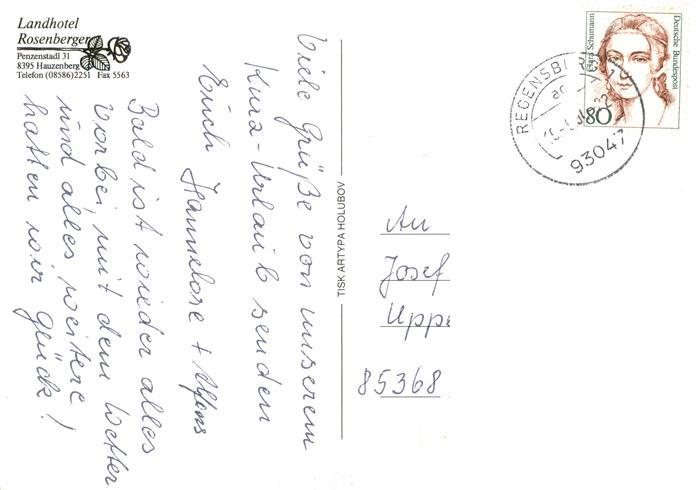 Landhotel
Rosenberger
Penzenstadl 31
8395 Hauzenberg
Telefon (08586)2251 Fax 5563
Viele Grüße von unserem
Kurz-Urlaub senden
Euch Hannelore + Alfons
Bald ist wieder alles
vorbei, mit dem Wetter
und alles weitere
hatten wir Glück!
TISK ARTYPA HOLUBOV
Clara Schumann
Deutsche Bundespost
80
REGENSBURG
93047
An
Josef
Uppe
85368